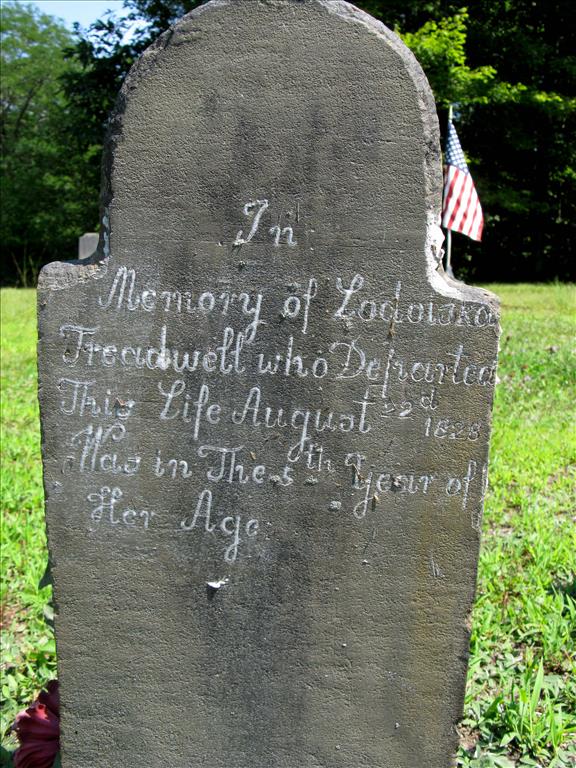 In
Memory of Lodoiska
Treadwell who Departed
This Life August 22d 1828
Was in The 5th Year of
Her Age